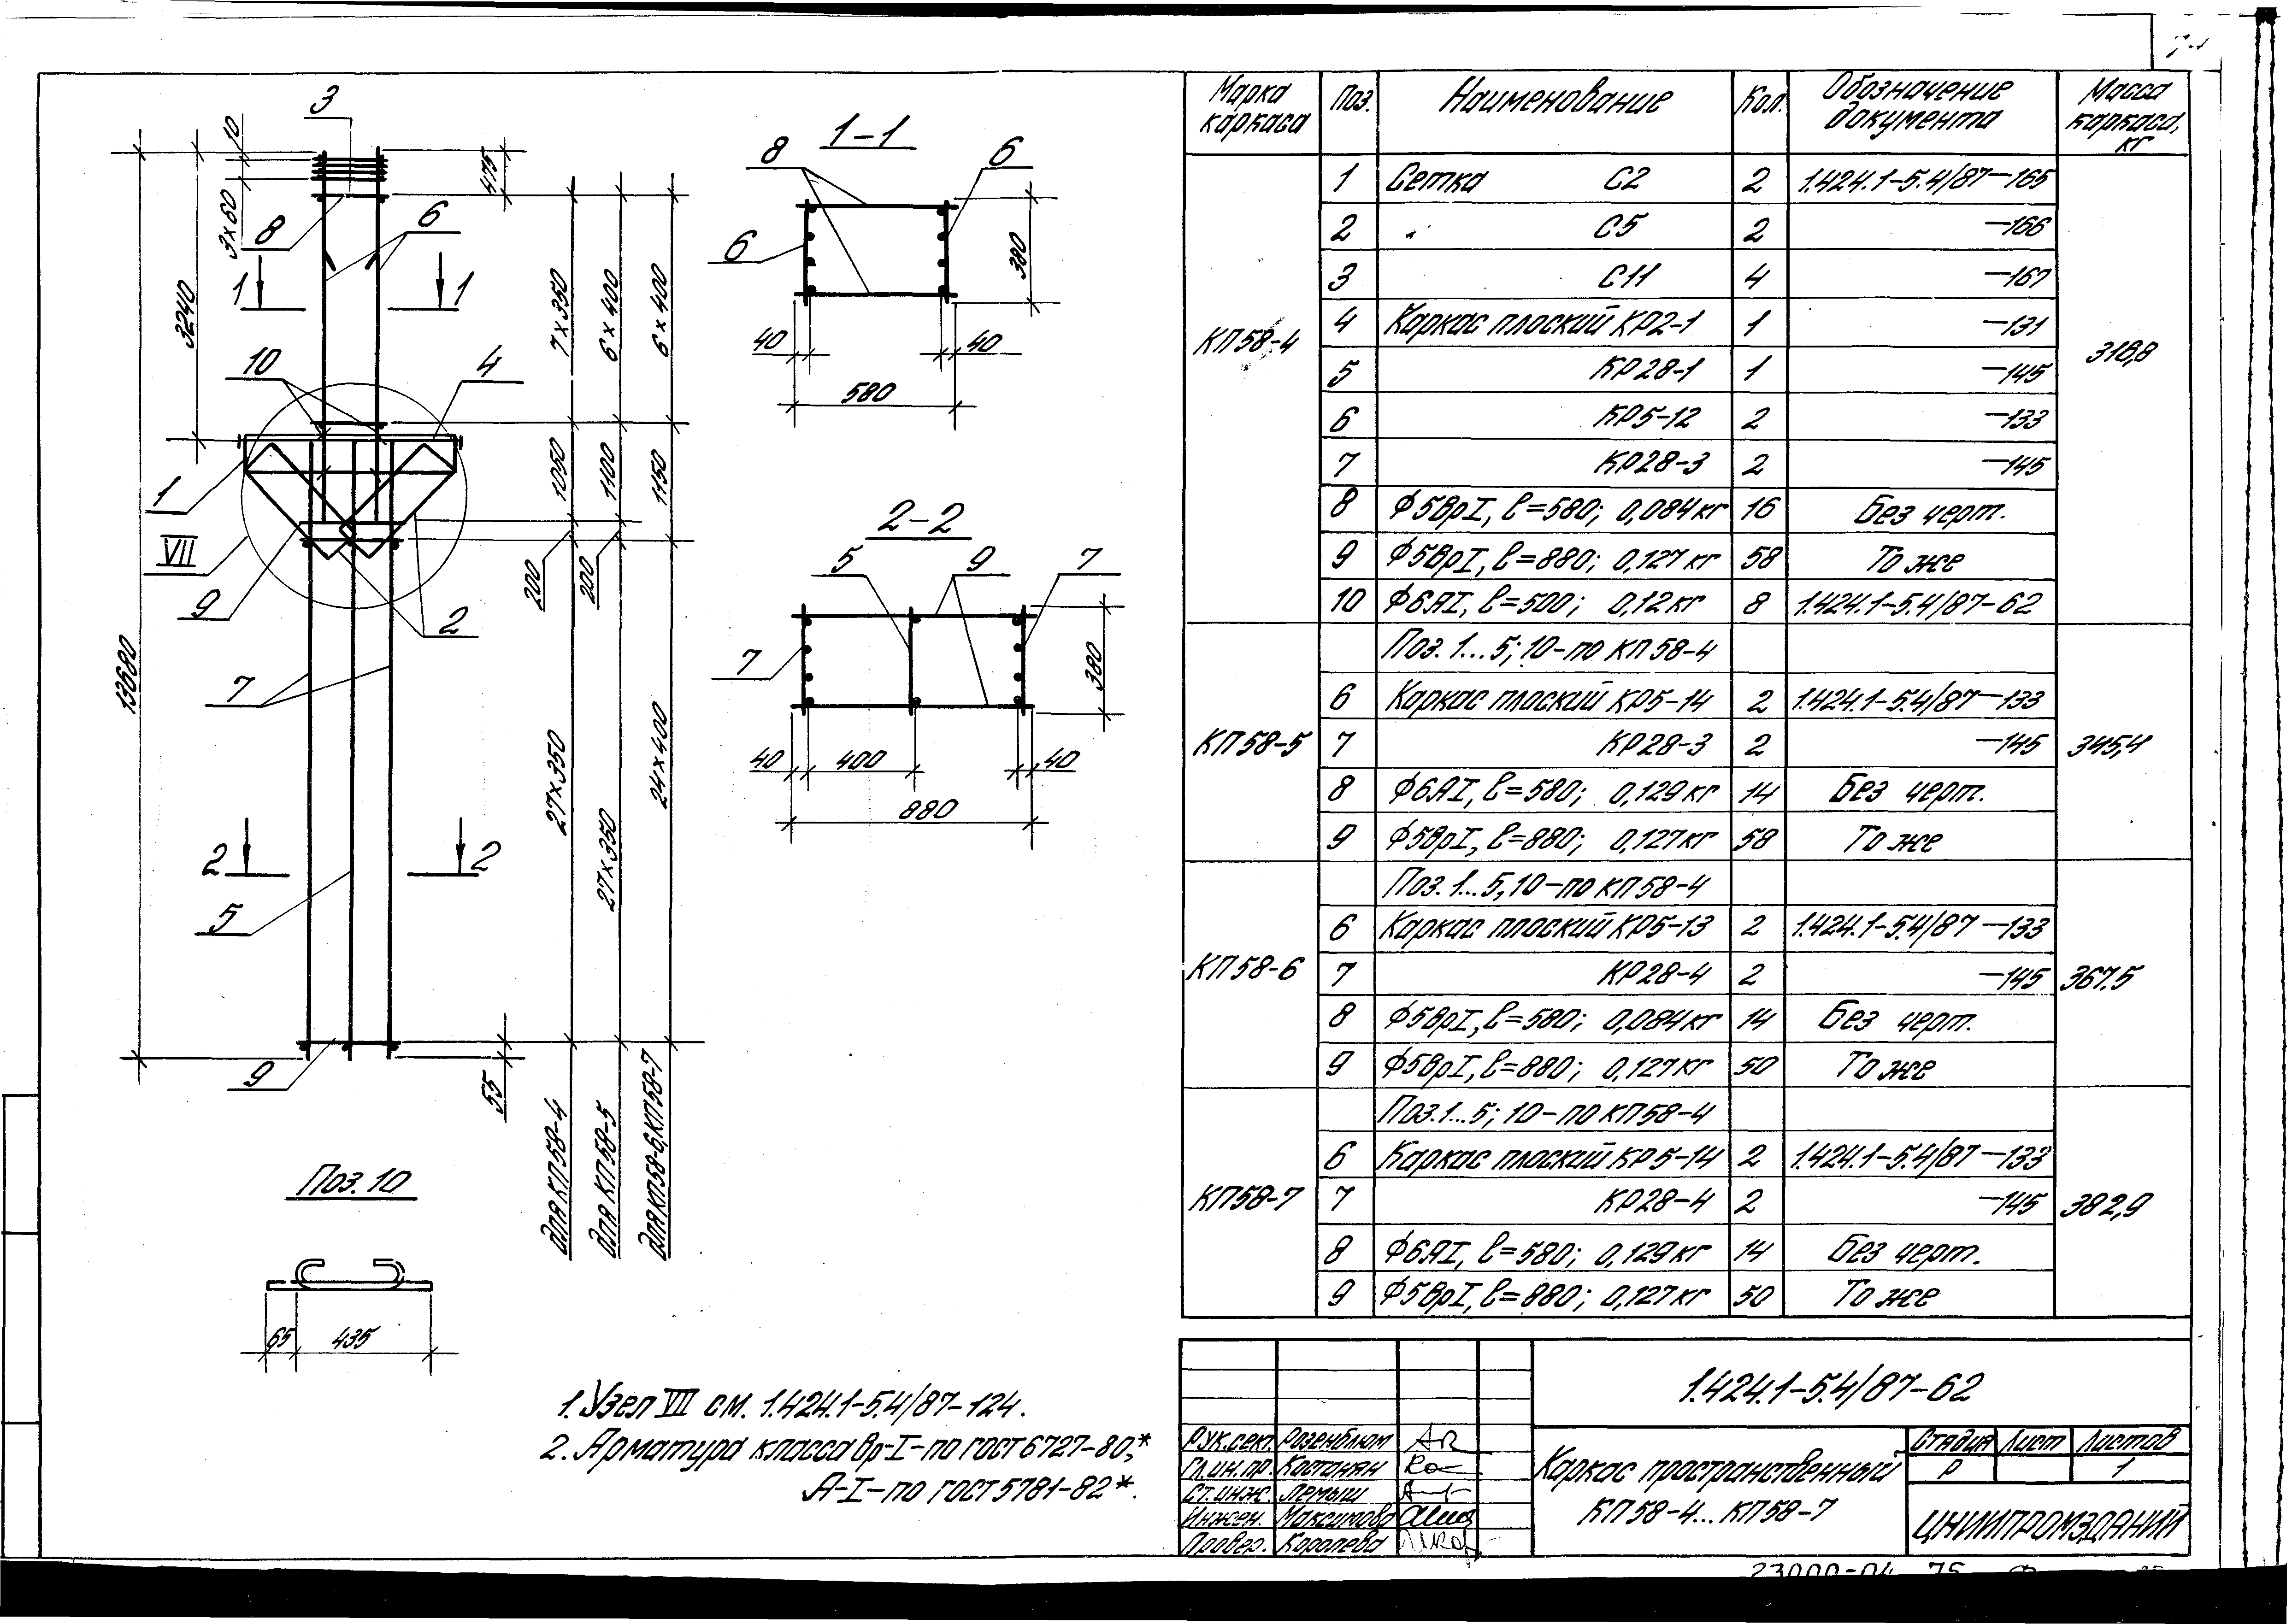 3
10
3×60
475
8
6
3240
1
1
7×350
6×400
6×400
10
4
1050
1100
1150
1
VII
9
200
200
2
13680
7
27×350
27×350
24×400
2
2
5
9
55
для КП58-4
для КП58-5
для КП58-6, КП58-7
Поз. 10
65
435
1-1
8
6
6
380
40
40
580
2-2
5
9
7
7
380
40
400
40
880
1. Узел VII см. 1.424.1-5.4/87-124.
2. Арматура класса Вр-I-по ГОСТ 6727-80,*
А-I-по ГОСТ 5781-82*.
Марка каркаса Поз. Наименование Кол. Обозначение документа Масса каркаса, кг
КП58-4 318,8
1 Сетка С2 2 1.424.1-5.4/87-165
2 " С5 2 -166
3 С11 4 -167
4 Каркас плоский КР2-1 1 -131
5 КР28-1 1 -145
6 КР5-12 2 -133
7 КР28-3 2 -145
8 Ф5ВрI, l=580; 0,084кг 16 Без черт.
9 Ф5ВрI, l=880; 0,127кг 58 То же
10 Ф6АI, l=500; 0,12кг 8 1.424.1-5.4/87-62
КП58-5 345,4
Поз. 1...5; 10-по КП58-4
6 Каркас плоский КР5-14 2 1.424.1-5.4/87-133
7 КР28-3 2 -145
8 Ф6АI, l=580; 0,129кг 14 Без черт.
9 Ф5ВрI, l=880; 0,127кг 58 То же
КП58-6 367.5
Поз. 1...5, 10-по КП58-4
6 Каркас плоский КР5-13 2 1.424.1-5.4/87-133
7 КР28-4 2 -145
8 Ф5ВрI, l=580; 0,084кг 14 Без черт.
9 Ф5ВрI, l=880; 0,127кг 50 То же
КП58-7 382,9
Поз. 1...5; 10-по КП58-4
6 Каркас плоский КР5-14 2 1.424.1-5.4/87-133
7 КР28-4 2 -145
8 Ф6АI, l=580; 0,129кг 14 Без черт.
9 Ф5ВрI, l=880; 0,127кг 50 То же
1.424.1-5.4/87-62
Рук.сект. Розенблюм
Гл.ин.пр. Костанян
Ст.инж. Лемыш
Инжен. Максимова
Провер. Королева
Каркас пространственный
КП58-4...КП58-7
Стадия Лист Листов
Р 1
ЦНИИПРОМЗДАНИЙ
23000-04 75